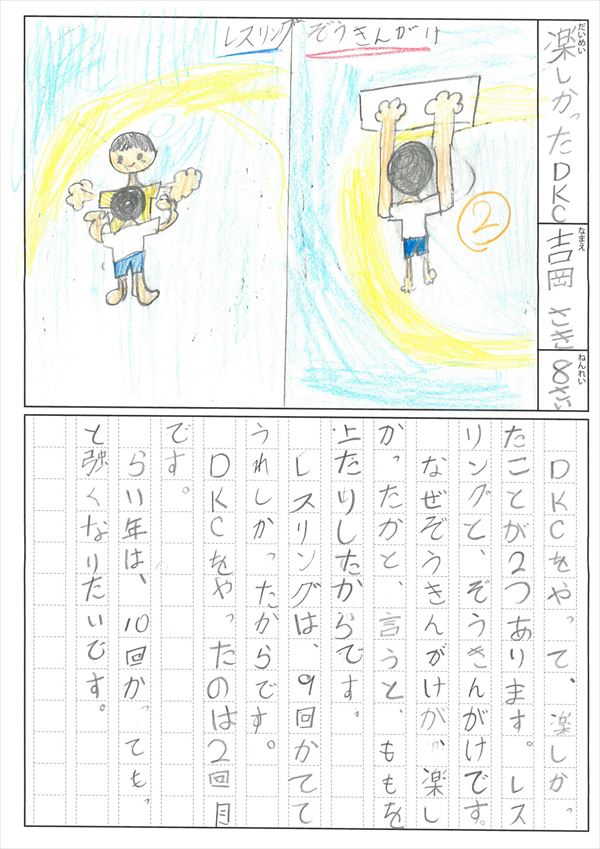 だいめい
楽しかったDKC
なまえ
吉岡 さき
ねんれい
8さい
レスリング ぞうきんがけ
②
DKCをやって、楽しかっ
たことが2つあります。レス
リングと、ぞうきんがけです。
なぜぞうきんがけが、楽し
かったかと、言うと、ももを
上たりしたからです。
レスリングは、9回かてて
うれしかったからです。
DKCをやったのは2回目
です。
らい年は、10回かってもっ
と強くなりたいです。